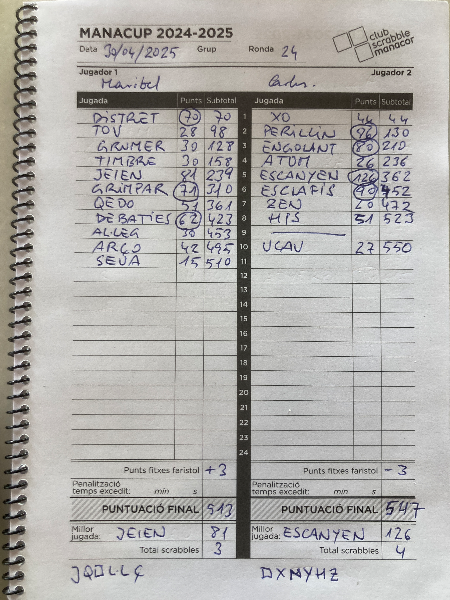 MANACUP 2024-2025
club scrabble manacor
Data 30/04/2025 Grup Ronda 24
Jugador 1 Jugador 2
Maribel Carles.
Jugada Punts Subtotal Jugada Punts Subtotal
DISTRET 70 70 1 XO 44 44
TOV 28 98 2 PERILLIN 86 130
GRUMER 30 128 3 ENGOLANT 80 210
TIMBRE 30 158 4 ATOM 26 236
JEIEN 81 239 5 ESCANYEN 126 362
GRIMPAR 71 310 6 ESCLAFIS 90 452
QEDO 51 361 7 ZEN 20 472
DEBATIES 62 423 8 HIS 51 523
AL·LEG 30 453 9
ARÇO 42 495 10 UCAV 27 550
SEUA 15 510 11
12
13
14
15
16
17
18
19
20
21
22
23
24
Punts fitxes faristol +3 Punts fitxes faristol -3
Penalització temps excedit: min s Penalització temps excedit: min s
PUNTUACIÓ FINAL 513 PUNTUACIÓ FINAL 547
Millor jugada: JEIEN 81 Millor jugada: ESCANYEN 126
Total scrabbles 3 Total scrabbles 4